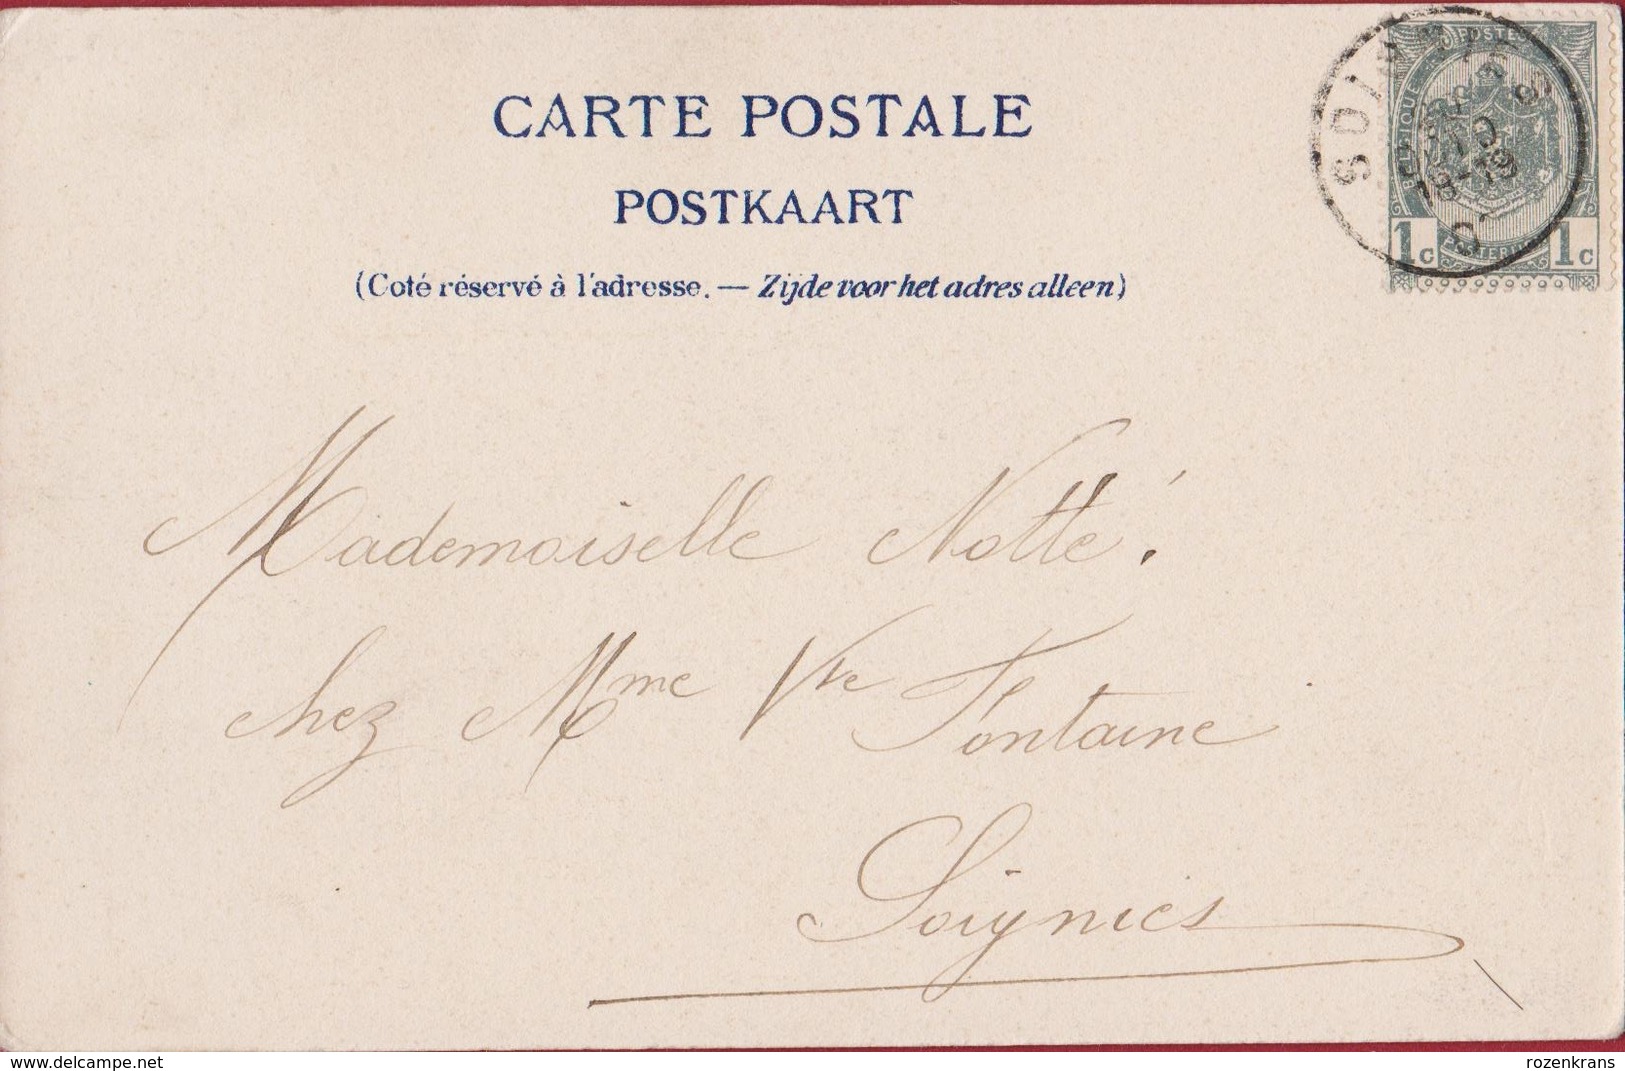 CARTE POSTALE
POSTKAART
(Coté réservé à l'adresse. — Zijde voor het adres alleen)
POSTES
BELGIQUE
1c 1c
SOIGNIES
10
18-19
Mademoiselle Notté.
chez Mme Vve Fontaine
Soignies
delcampe.net
rozenkrans